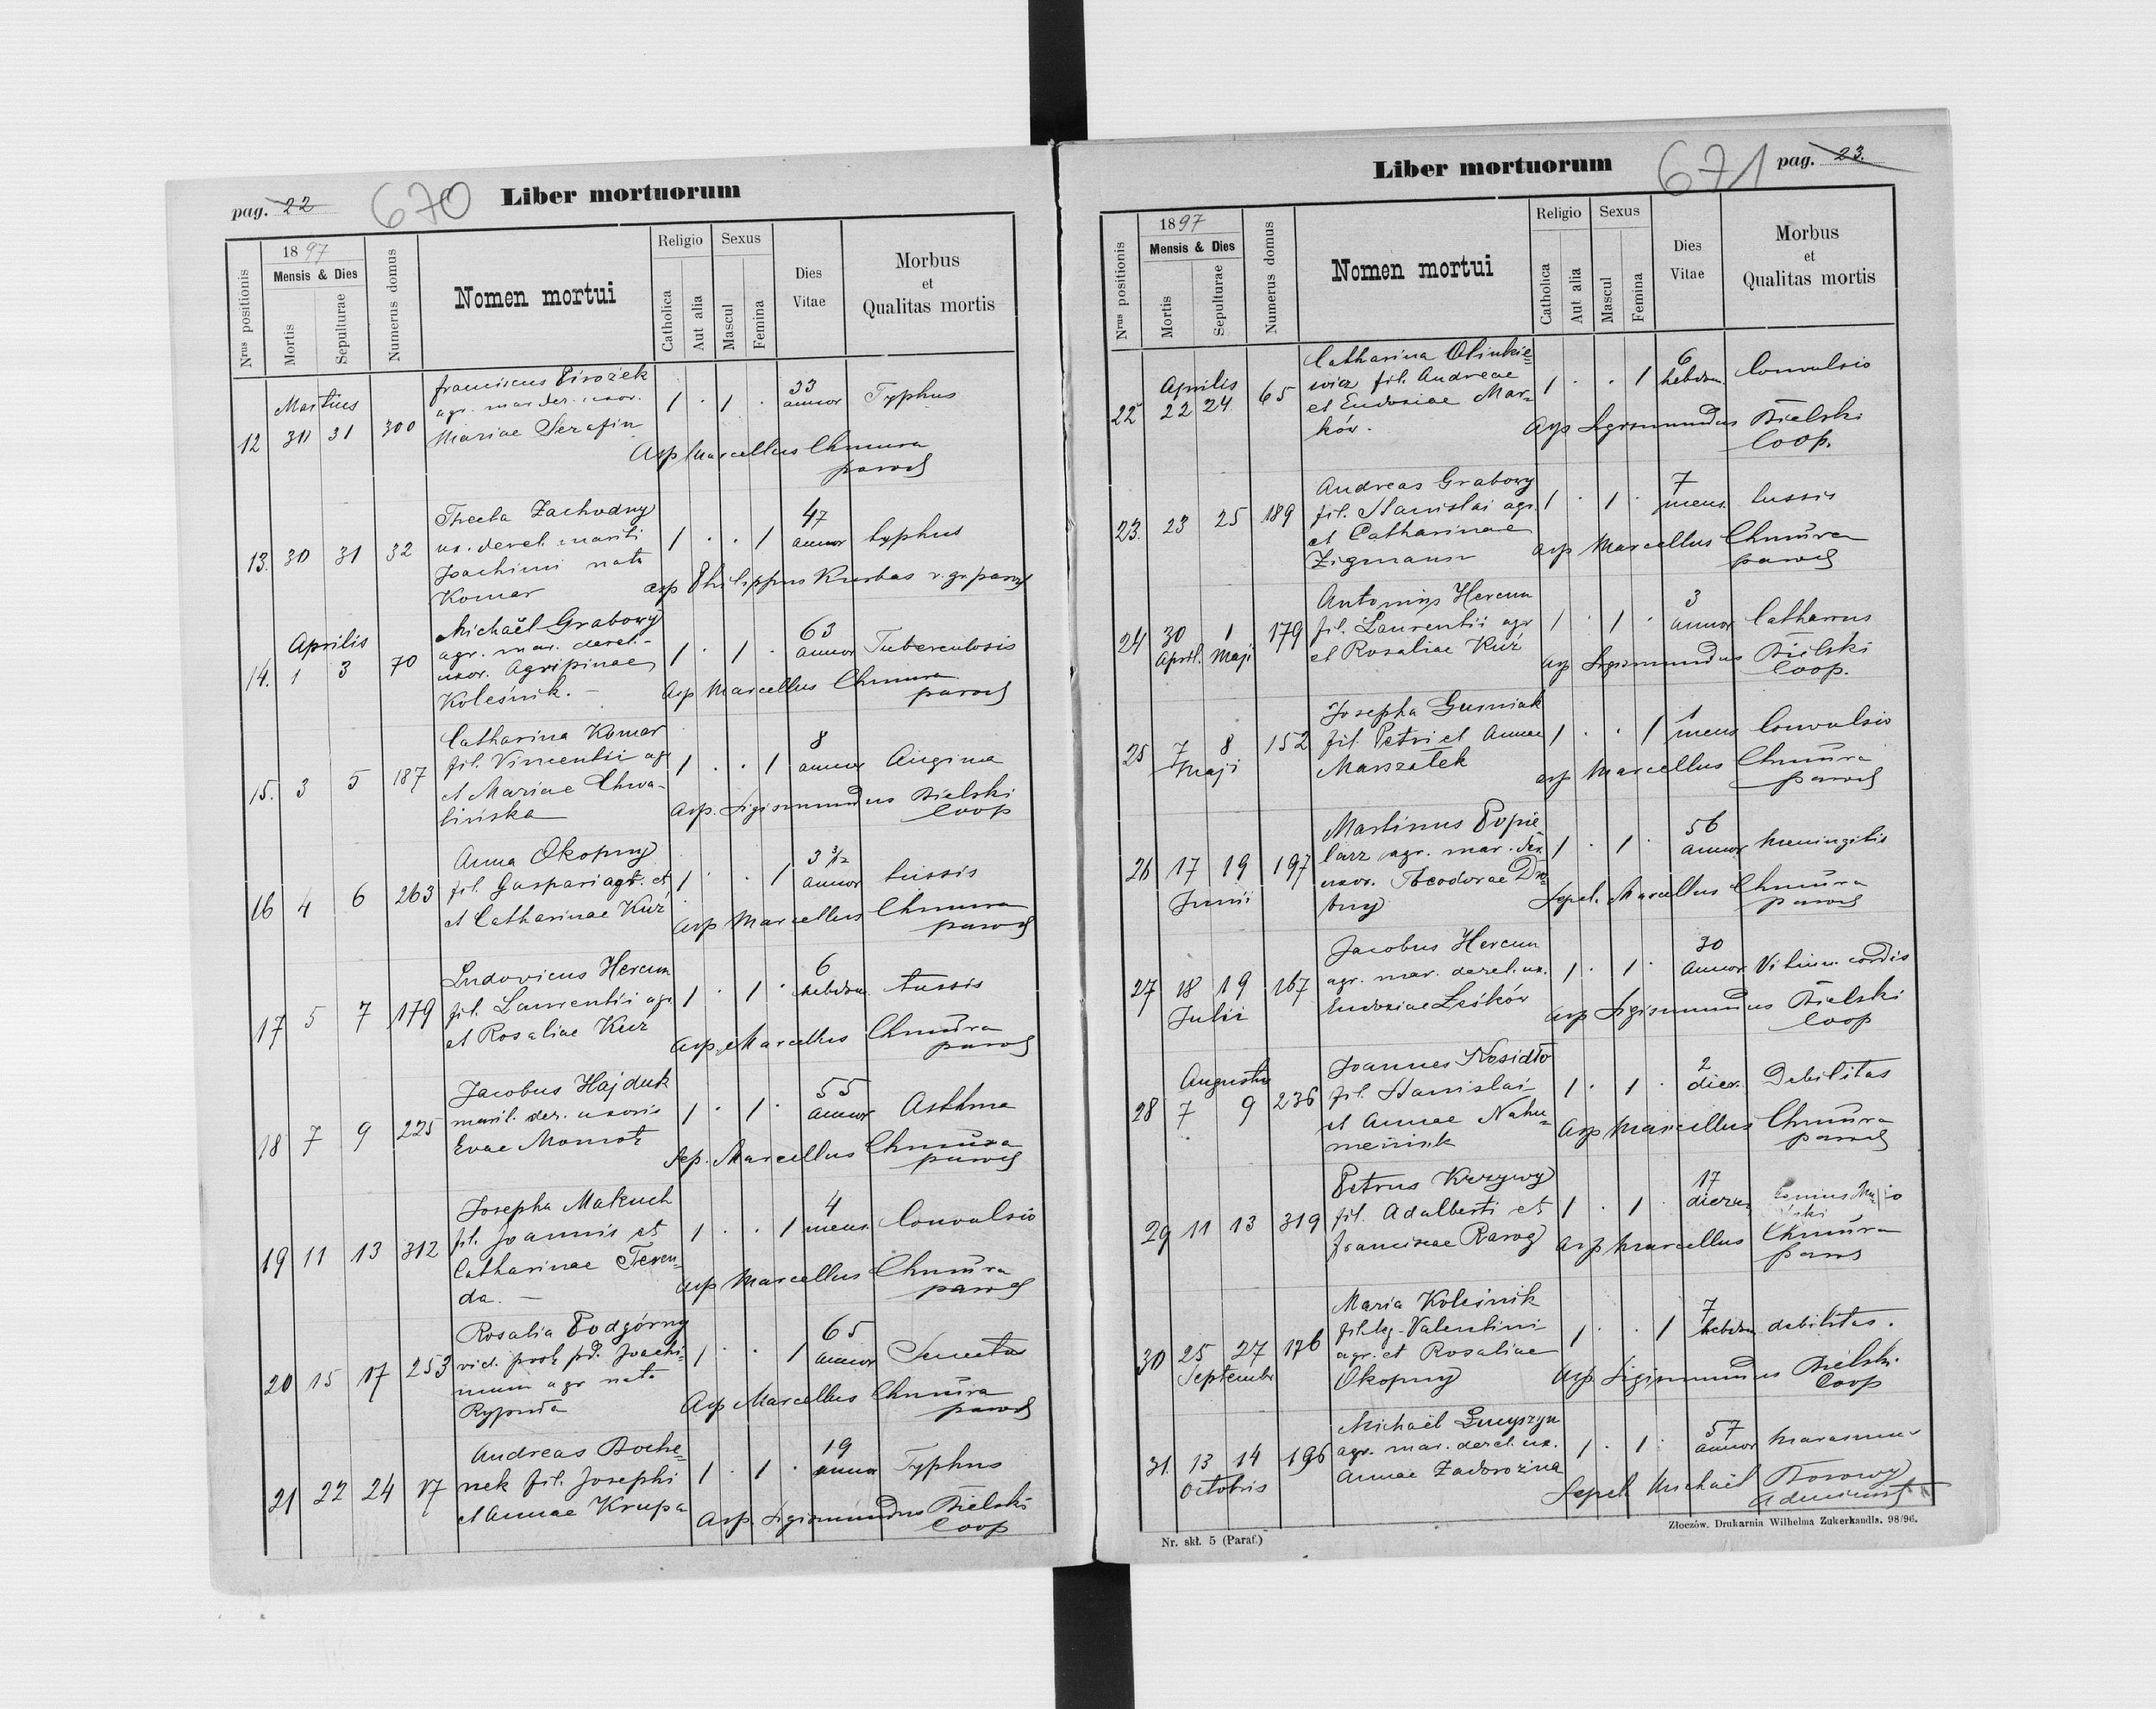 pag. 22
670
Liber mortuorum
Nrus positionis
1897
Mensis & Dies
Mortis
Sepulturae
Numerus domus
Nomen mortui
Religio
Catholica
Aut alia
Sexus
Mascul
Femina
Dies
Vitae
Morbus
et
Qualitas mortis
Martius
12 30 31 300
Franciscus Pirożek
agr. mar. der. uxor.
Mariae Serafin
1 . 1 .
33
annor
Typhus
Asp Marcellus Chmura
paroch
13. 30 31 32
Thecla Zachodny
ux. derel. mariti
Joachimi nata
Komar
1 . . 1
47
annor
typhus
asp Philippus Kurbas r. gr. paroch
Aprilis
14. 1 3 70
Michaël Grabowy
agr. mar. derel.
uxor. Agripinae
Koleśnik. —
1 . 1 .
63
annor
Tuberculosis
Asp Marcellus Chmura
paroch
15. 3 5 187
Catharina Komar
fil. Vincentii agr
et Mariae Chwa-
lińska
1 . . 1
8
annor
Angina
Asp. Sigismundus Bielski
Coop
16 4 6 263
Anna Okopny
fil. Gaspari agr. et
et Catharinae Kuź
1 . . 1
3 3/12
annor
tussis
Asp Marcellus Chmura
paroch
17 5 7 179
Ludovicus Hercun
fil. Laurentii agr
et Rosaliae Kuź
1 . 1 .
6
hebdom.
tussis
Asp. Marcellus Chmura
paroch
18 7 9 225
Jacobus Hajduk
marit. der. uxoris
Evae Momot
1 . 1 .
55
annor
Asthma
Sep. Marcellus Chmura
paroch
19 11 13 312
Josepha Makuch
fil. Joannis et
Catharinae Teren-
da. —
1 . . 1
4
mens.
Convulsio
asp Marcellus Chmura
paroch
20 15 17 253
Rosalia Podgórny
vid. post pd. Joachi-
mum agr nata
1 . . 1
65
annor
Senectus
Asp Marcellus Chmura
paroch
21 22 24 17
Andreas Boche-
nek fil. Josephi
et Annae Krupa
1 . 1 .
19
annor
Typhus
Asp. Sigismundus Bielski
Coop
Liber mortuorum
671
pag. 23.
Nrus positionis
1897
Mensis & Dies
Mortis
Sepulturae
Numerus domus
Nomen mortui
Religio
Catholica
Aut alia
Sexus
Mascul
Femina
Dies
Vitae
Morbus
et
Qualitas mortis
Aprilis
22 22 24. 65
Catharina Olinkie-
wicz fil. Andreae
et Eudoxiae Mar-
ków.
1 . . 1
6
hebdom.
Convulsio
Asp Sigismundus Bielski
Coop.
23. 23 25 189
Andreas Grabowy
fil. Stanislai agr.
et Catharinae
Zigmann
1 . 1 .
7
mens.
tussis
asp Marcellus Chmura
paroch
24 30 1 179
April. Maji
Antonius Hercun
fil. Laurentii agr
et Rosaliae Kuź
1 . 1 .
3
annor
Catharrus
Asp Sigismundus Bielski
Coop.
25 7 8 152
Maji
Josepha Guzniak
fil. Petri et Annae
Marszałek
1 . . 1
1
mens
Convulsio
asp Marcellus Chmura
paroch
26 17 19 197
Junii
Martinus Popie-
larz agr. mar. der.
uxor. Theodorae Dro-
bny
1 . 1 .
56
annor
meningitis
Sepel. Marcellus Chmura
paroch
27 18 19 167
Julii
Jacobus Hercun
agr. mar. derel. ux.
Eudoxiae Leśków
1 . 1 .
30
annor
Vitium cordis
asp Sigismundus Bielski
Coop
Augusti
28 7 9 236
Joannes Nosidło
fil. Stanislai
et Annae Nahu-
1 . 1 .
2
dier.
Debilitas
Asp Marcellus Chmura
paroch
29 11 13 319
Petrus Krzywy
fil. Adalberti et
Franciscae Raróg
1 . 1 .
17
dierum
Asp Marcellus Chmura
paroch
30 25 27 176
Septembr
Maria Koleśnik
fil. leg. Valentini
agr. et Rosaliae
Okopny
1 . . 1
7
hebdom.
debilitas.
Asp Sigismundus Bielski
Coop
31. 13 14 196
Octobris
agr. mar. derel. ux.
Annae Zadorożna
1 . 1 .
57
annor
marasmus
Sepel. Michaël Borowy
Administr
Nr. skł. 5 (Paraf.)
Złoczów. Drukarnia Wilhelma Zukerkandla. 98/96.